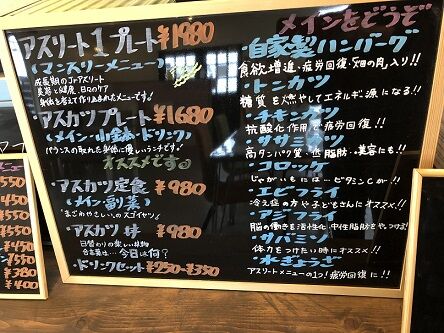 アスリート1プレート ¥1980
(マンスリーメニュー)
成長期のJrアスリート
美容と健康 日々のケア
身体を考えて作り込まれたメニューです!
アスカツプレート ¥1680
(メイン・小鉢・ドリンク)
バランスの取れた身体に優しいランチです!
オススメです
・アスカツ定食 ¥980
(メイン 副菜)
まごわやさしいのスゴイヤツ!
・アスカツ丼 ¥980
日替わりの楽しい丼物
合言葉は…今日は何?
・ドリンクセット ¥250〜¥350
メインをどうぞ
・自家製ハンバーグ
食欲増進・疲労回復・畑の肉入り!!
・トンカツ
糖質を燃やしてエネルギー源になる!!
・チキンカツ
抗酸化作用で疲労回復!!
・ササミカツ
高タンパク質・低脂肪・美容にも!!
・コロッケ
じゃがいもには…ビタミンCが!!
・エビフライ
冷え症の方や子どもさんにオススメ!!
・アジフライ
脳の働きを活性化 中性脂肪をやっつける!
・サバミソ
体力をつけたい時にオススメ!!
・水ぎょうざ
アスリートメニューの1つ!疲労回復に!!
¥550
¥550
¥450
¥550
¥380
¥400